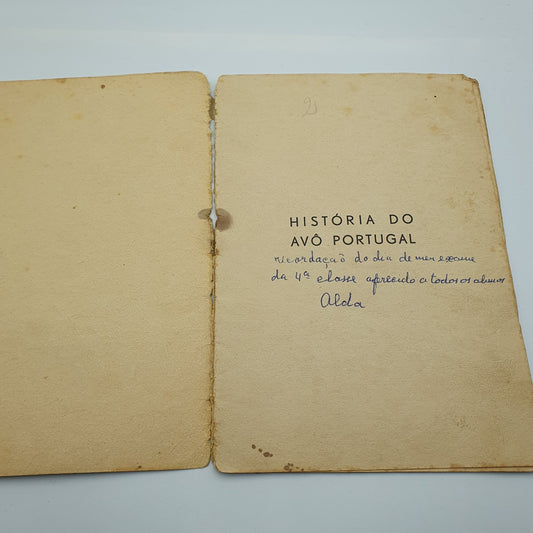 2
HISTÓRIA DO
AVÔ PORTUGAL
recordação do dia de meu exame
da 4ª classe oferecido a todos os alunos
Alda